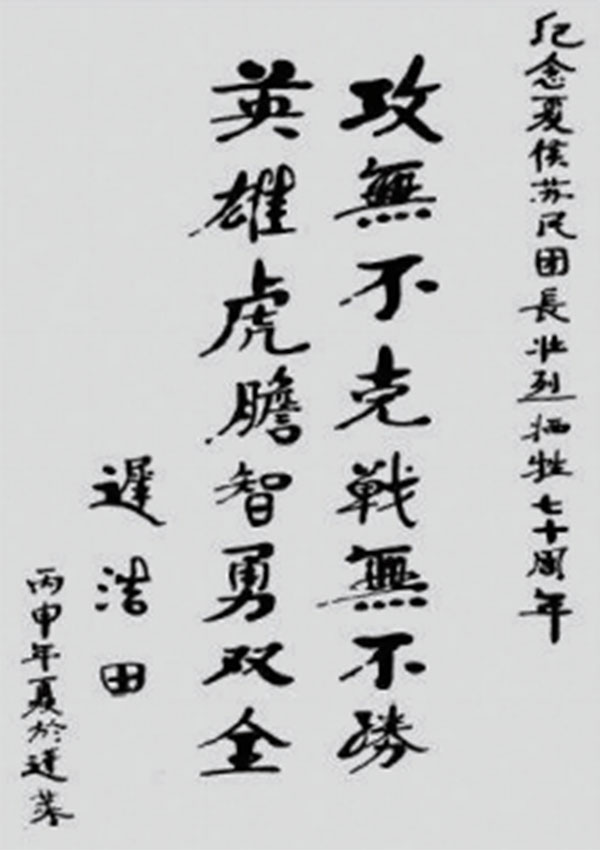 纪念夏侯苏民团長壮烈牺牲七十周年
攻無不克戦無不勝
英雄虎膽智勇双全
遲浩田
丙申年夏於蓬莱